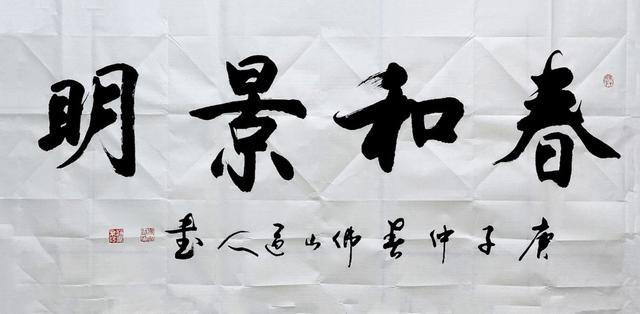 春和景明
庚子仲春佛山道人書